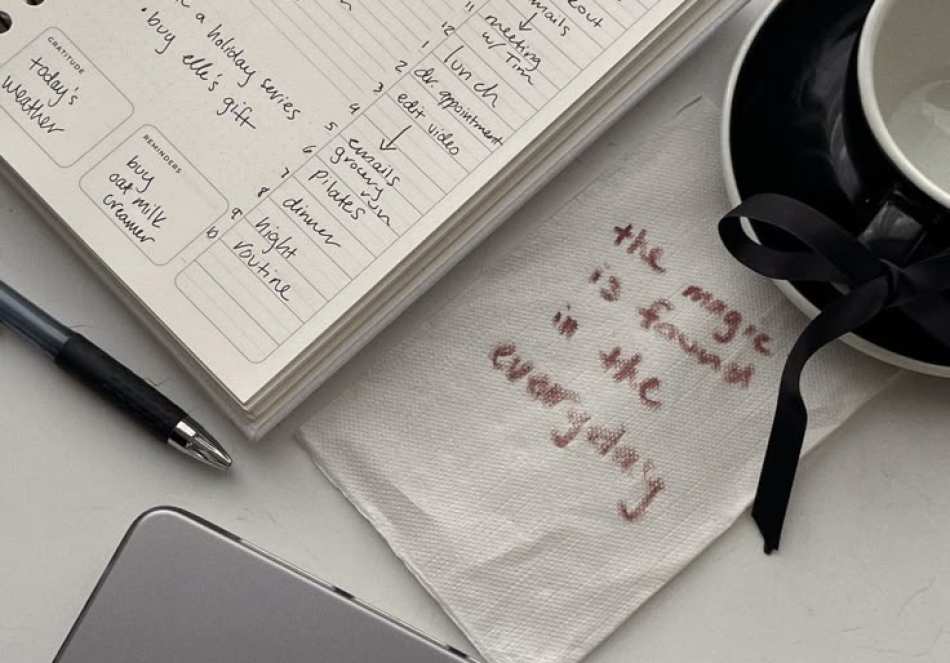 a holiday series
• buy elle's gift
GRATITUDE
today's
weather
REMINDERS
buy
oat milk
creamer
emails
11 meeting
w/ Tim
12 lunch
1 dr. appointment
2 edit video
3
4 emails
5 grocery run
6 pilates
7 dinner
8
9 night
10 routine
the magic
is found
in the
everyday